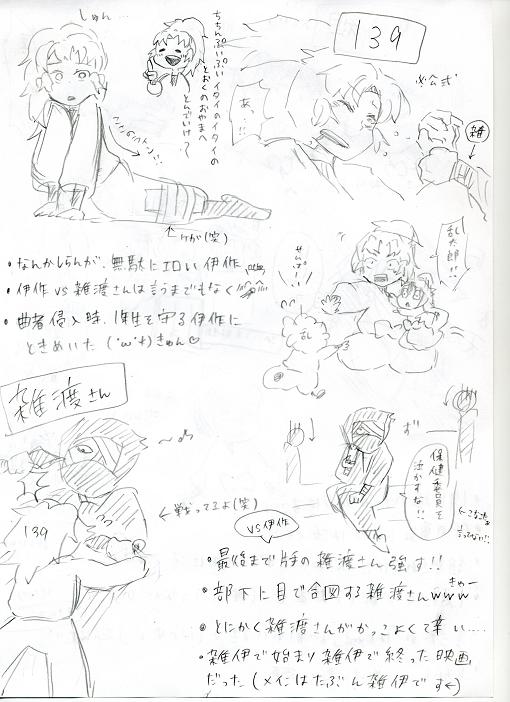 しゅん…
ちちんぷいぷいイタイのイタイの
とおくのおやまへ
とんでいけ〜?
139
※公式
あ、!!
雑
←けが(笑)
乱太郎!!
せんぱーい!!
乱
・なんかしらんが、無駄にエロい伊作
・伊作vs雑渡さんは言うまでもなく
・曲者侵入時、1年生を守る伊作に
ときめいた(・ω・*)きゅん♡
雑渡さん
139
←戦ってるよ(笑)
vs伊作
ず
保健委員を
泣かすな!!
←こなこと
言ってない!!
・最後まで片手の雑渡さん強す!!
・部下に目で合図する雑渡さんwww
きゅー
・とにかく雑渡さんがかっこよくて辛い……
・雑伊で始まり雑伊で終った映画
だった(メインはたぶん雑伊です←)